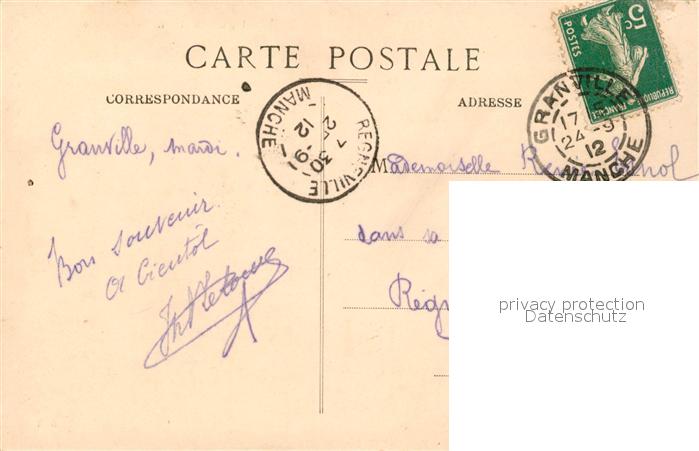 CARTE POSTALE
CORRESPONDANCE
ADRESSE
5c
POSTES
REPUBLIQUE
GRANVILLE
24-9
12
MANCHE
REGNEVILLE
7 30
-9
12
MANCHE
Granville, mardi.
Bon souvenir
A bientôt
Mademoiselle
dans sa
Régn
privacy protection
Datenschutz